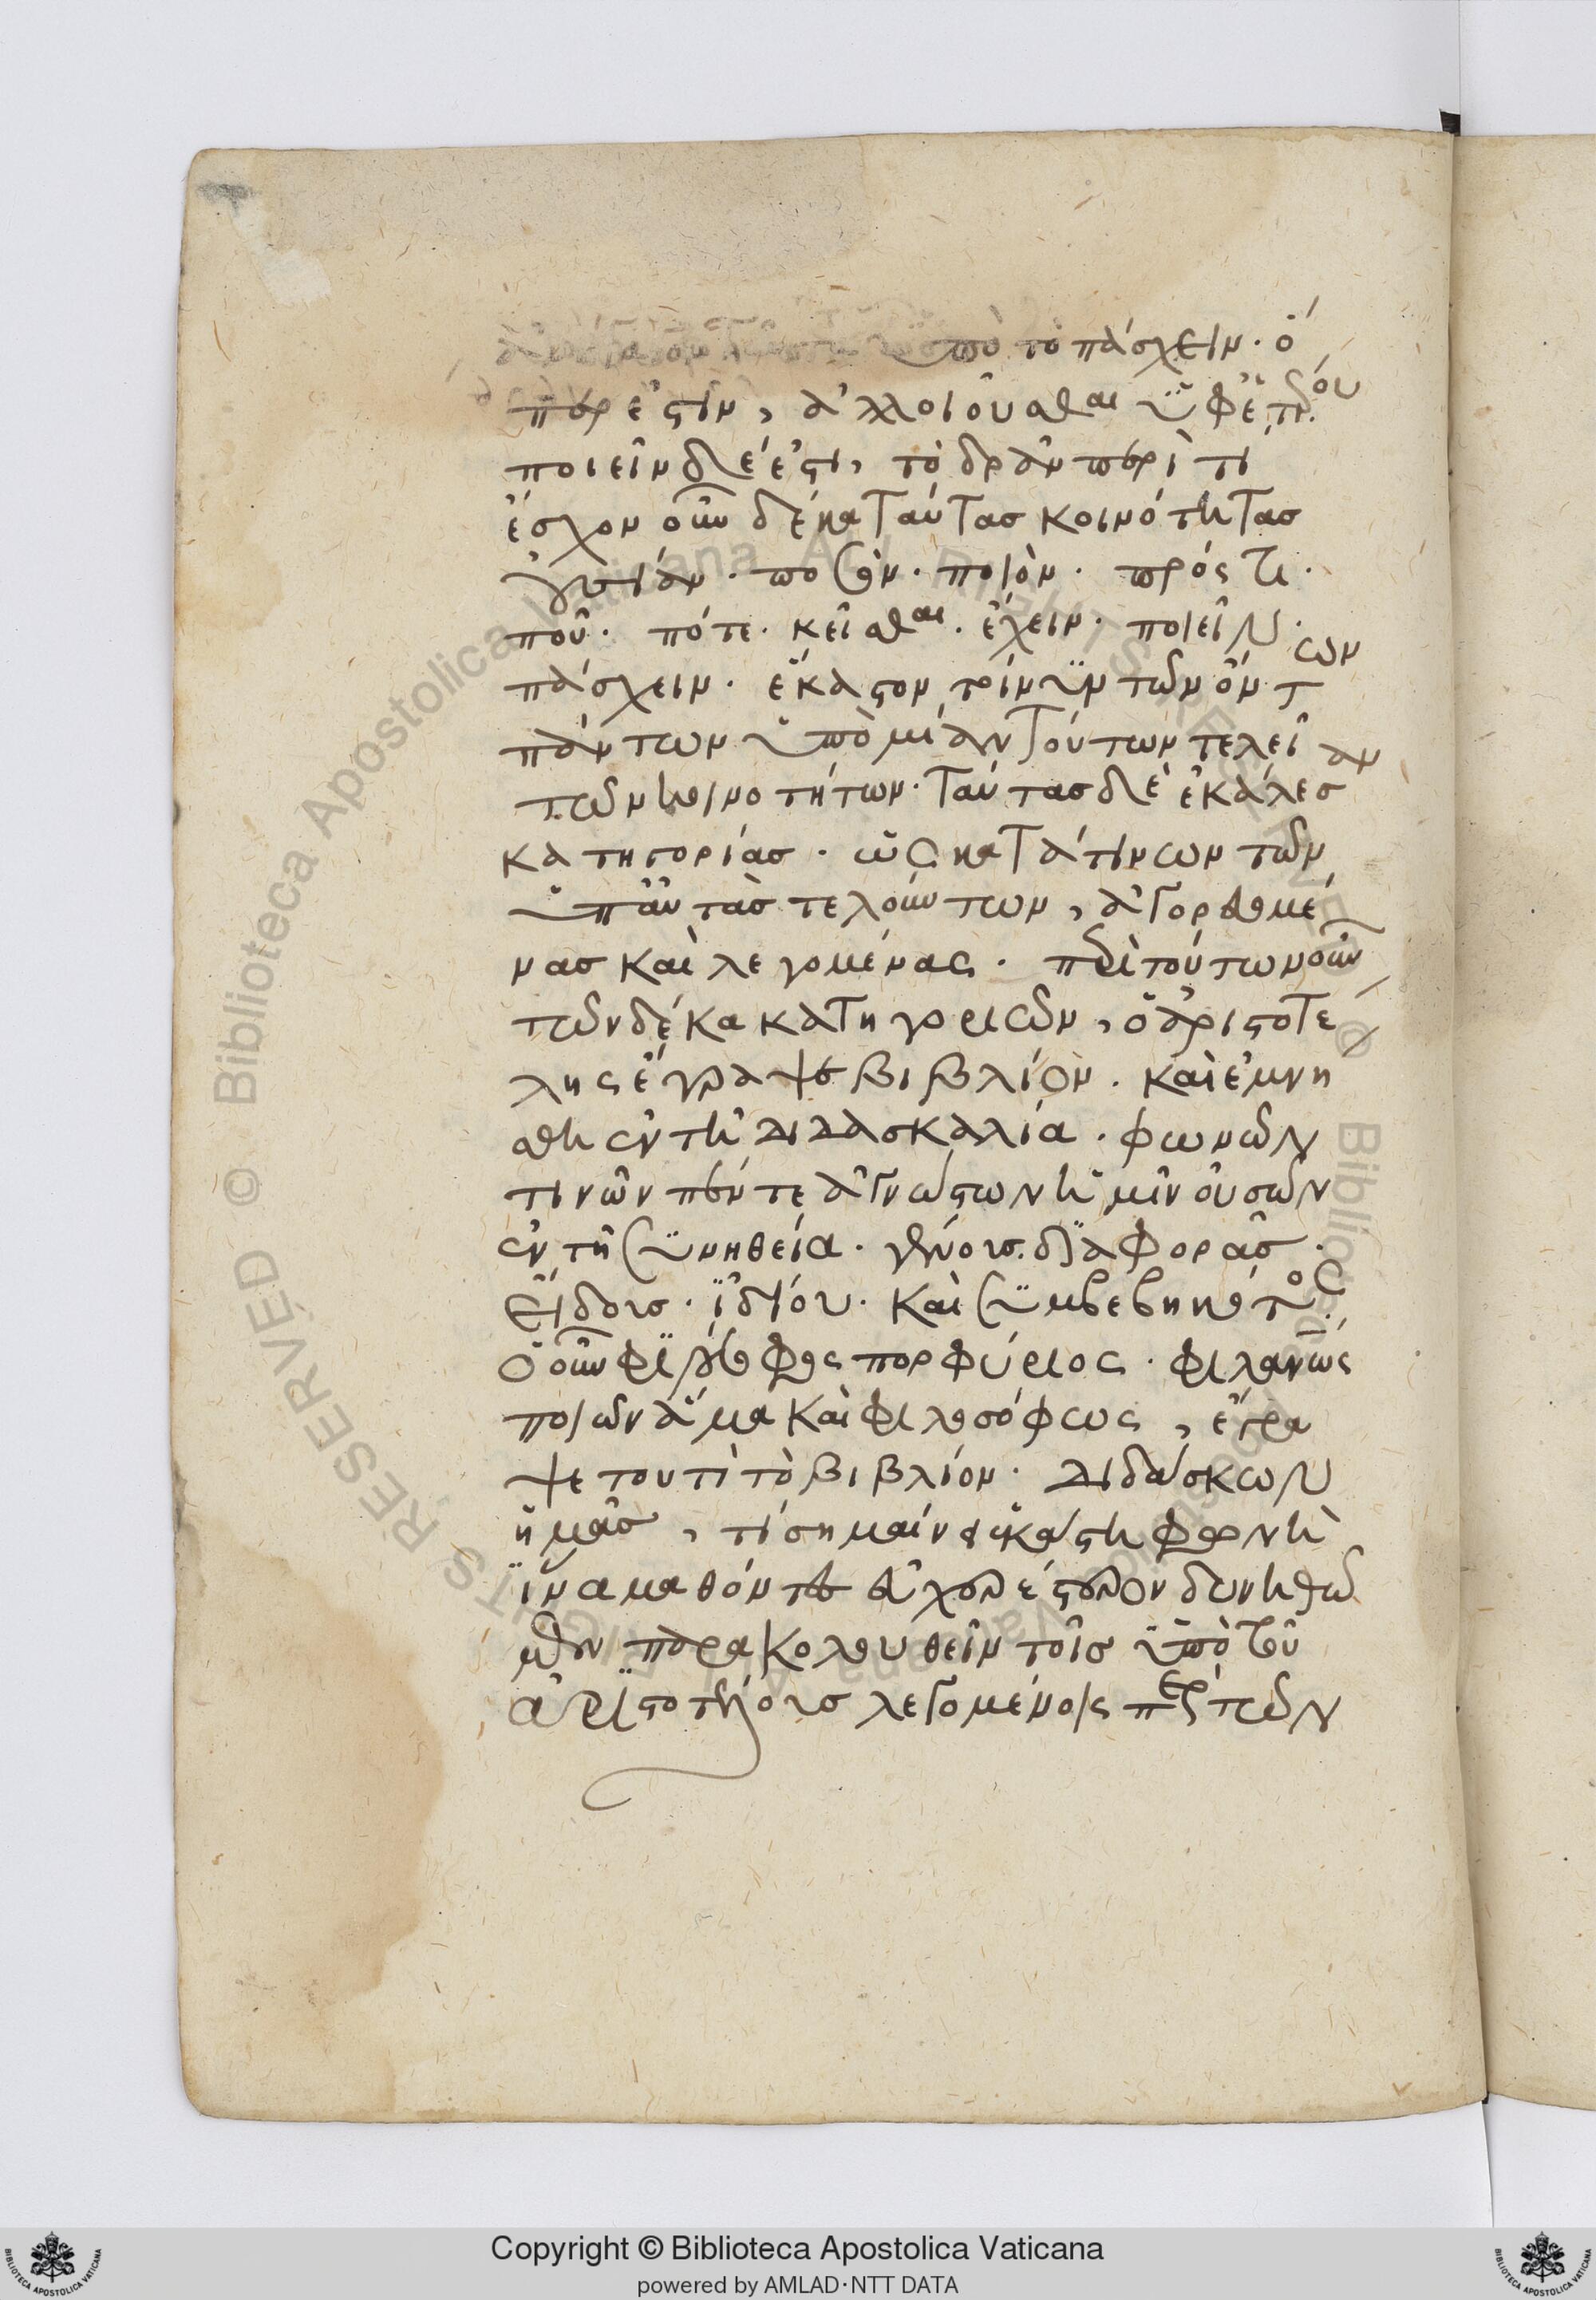 ὑπὸ τὸ πάσχειν · ὅ
περ ἐστιν, ἀλλοιοῦσθαι ὑφ' ἑτέρου
ποιεῖν δέ ἐστι, τὸ δρᾶν περί τι
ἔσχον οὖν δέκα ταύτας κοινότητας
οὐσίαν · ποσὸν · ποιὸν · πρός τι ·
ποῦ · πότε · κεῖσθαι · ἔχειν · ποιεῖν ·
πάσχειν · ἕκαστον τοίνυν τῶν ὄντων
πάντων ὑπὸ μίαν τούτων τελεῖ
τῶν κοινοτήτων · ταύτας δὲ ἐκάλεσαν
κατηγορίας · ὡς κατά τινων τῶν
ὑπ' αὐτὰς τελούντων, ἀγορευομέ
νας καὶ λεγομένας · περὶ τούτων οὖν
τῶν δέκα κατηγοριῶν, ὁ ἀριστοτέ
λης ἔγραψε βιβλίον · καὶ ἐμνή
σθη ἐν τῆ διδασκαλία · φωνῶν
τινῶν πέντε ἀγνώστων ἡμῖν οὐσῶν
ἐν τῆ συνηθεία · γένους · διαφορᾶς ·
εἴδους · ἰδίου · καὶ συμβεβηκότος
ὁ οὖν φιλόσοφος πορφύριος · φιλανῶς
ποιῶν ἅμα καὶ φιλοσόφως, ἔγρα
ψε τουτὶ τὸ βιβλίον · διδάσκων
ἡμᾶς, τί σημαίνει ἑκάστη φωνὴ
ἵνα μαθόντες εὐχερέστερον δυνηθῶ
μεν παρακολουθεῖν τοῖς ὑπὸ τοῦ
ἀριστοτέλους λεγομένοις περὶ τῶν